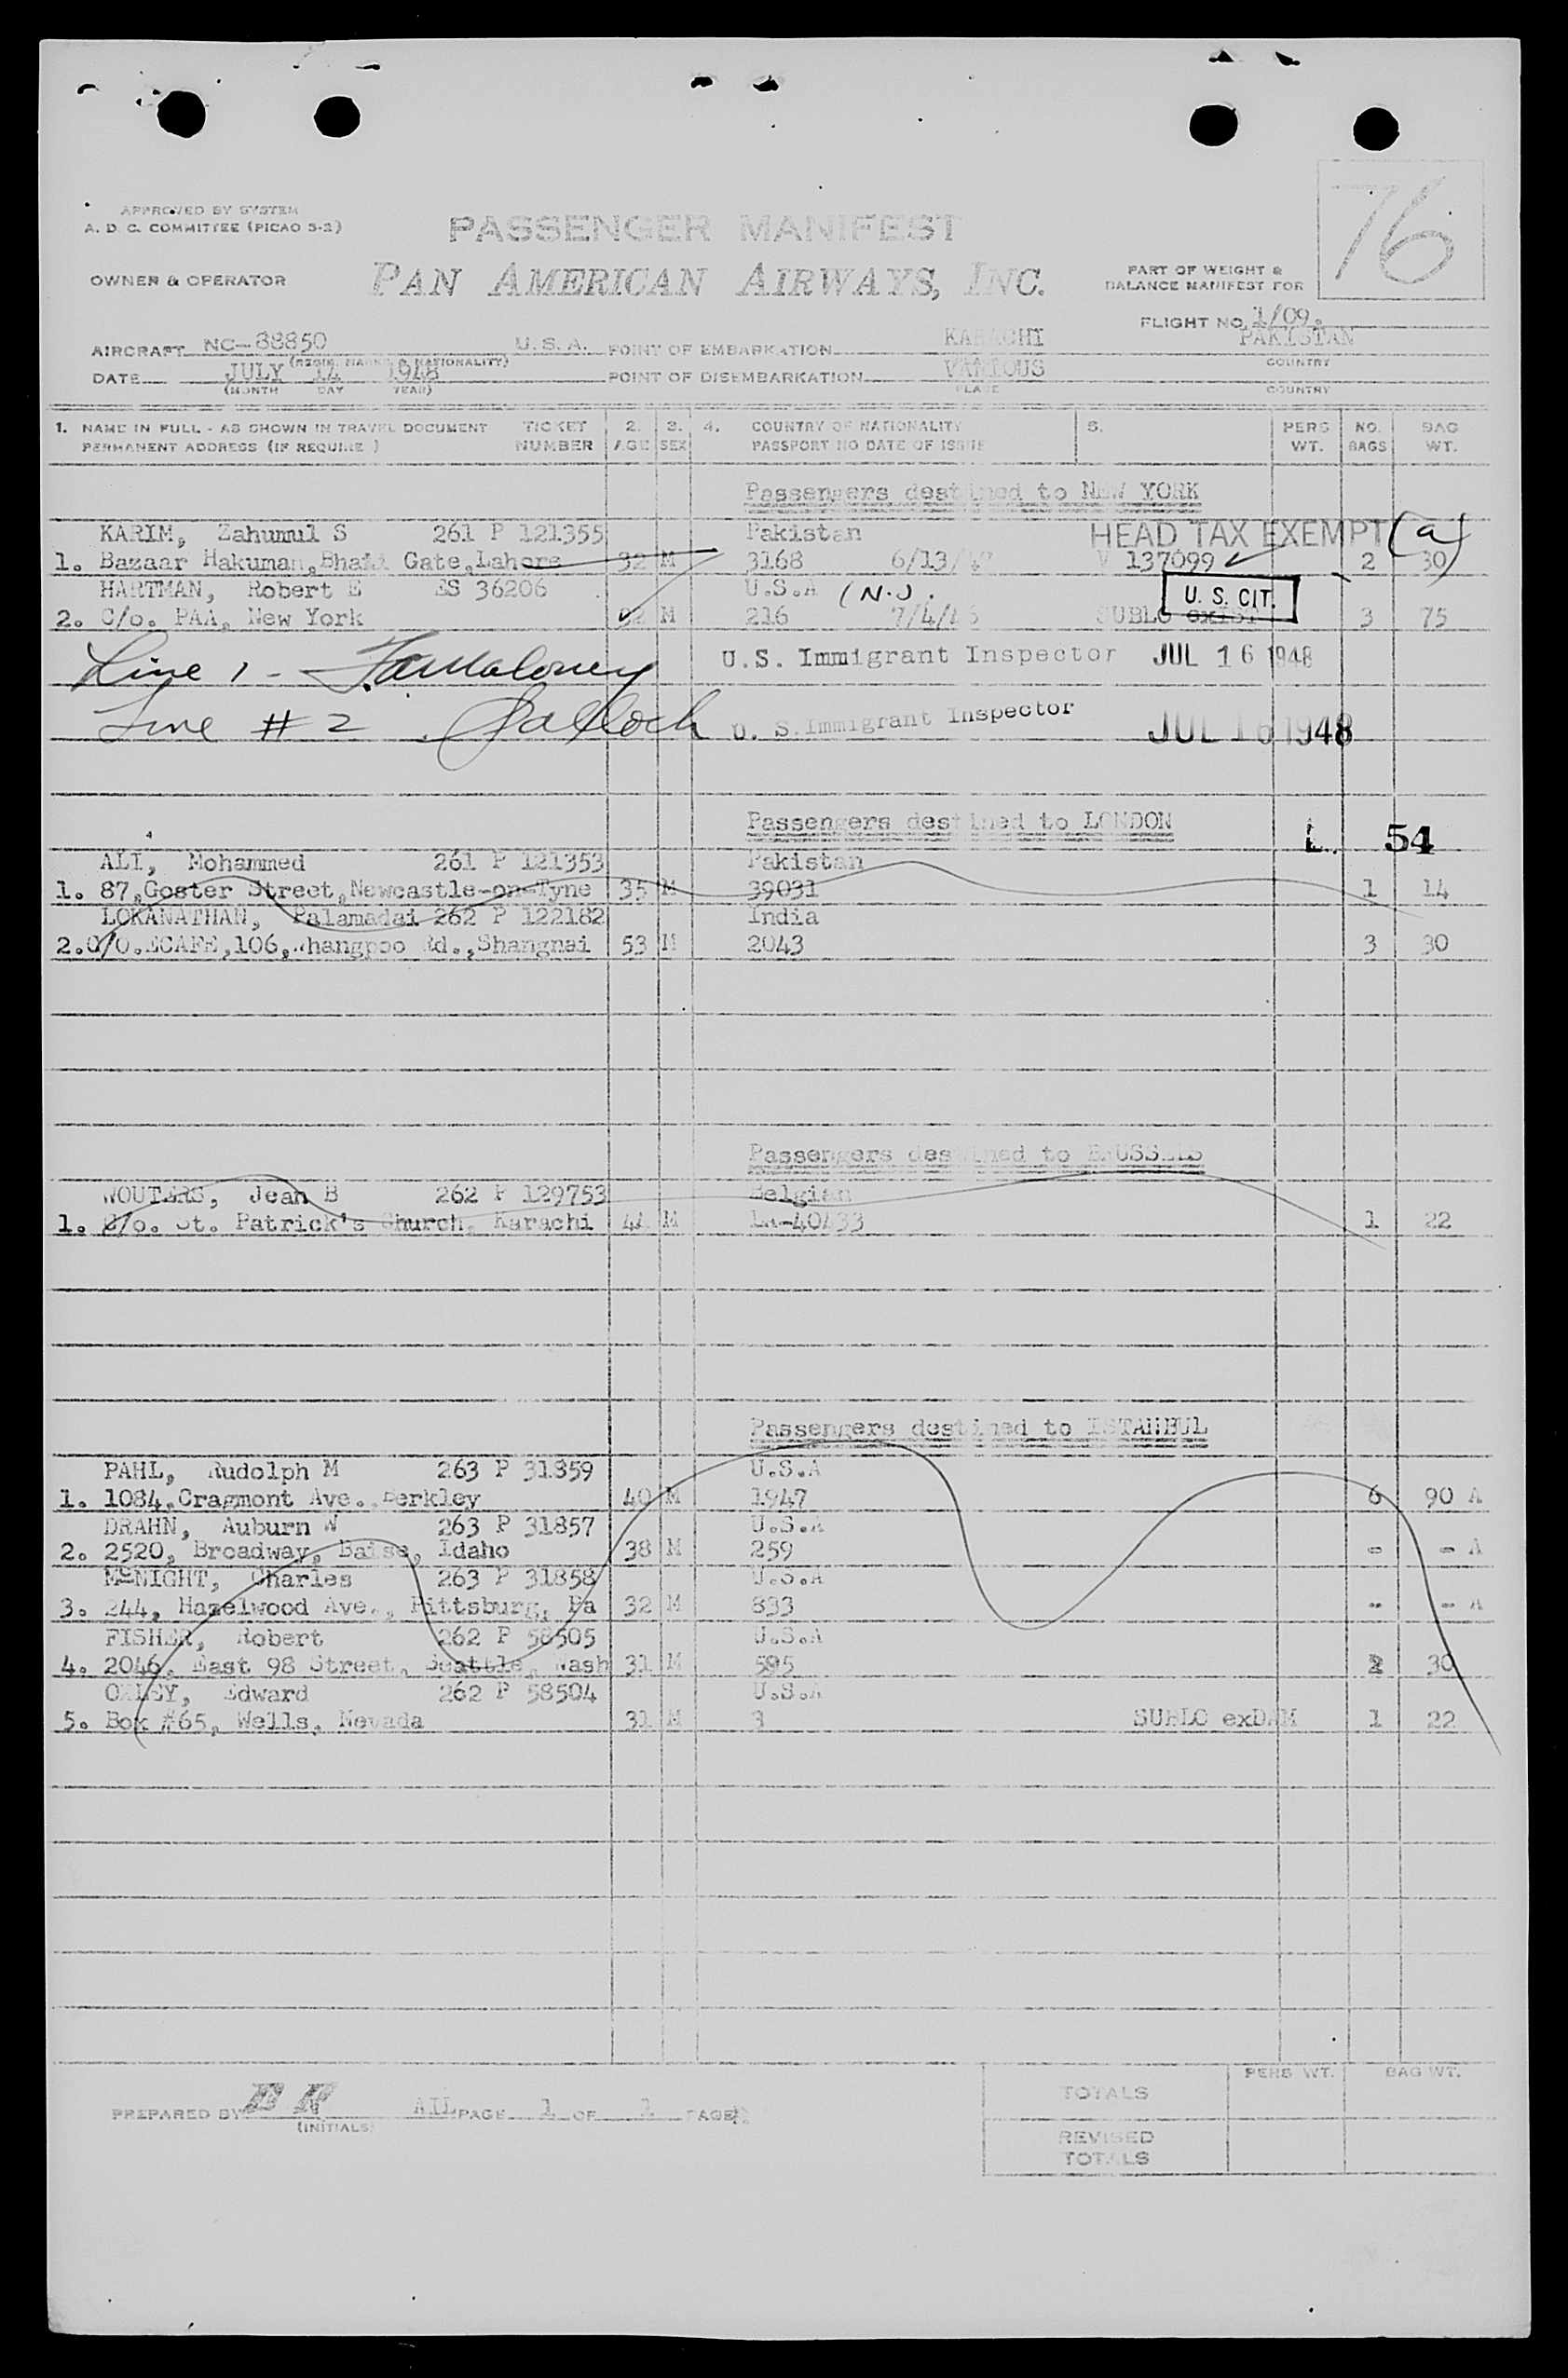 APPROVED BY SYSTEM
A. D. C. COMMITTEE (PICAO 3-2)
PASSENGER MANIFEST
76
OWNER & OPERATOR PAN AMERICAN AIRWAYS, INC.
PART OF WEIGHT &
BALANCE MANIFEST FOR
FLIGHT NO. 1/09.
AIRCRAFT NC-88850 U.S.A. POINT OF EMBARKATION KARACHI PAKISTAN
(REGIS. MARKS & NATIONALITY) COUNTRY
DATE JULY 14 1948 POINT OF DISEMBARKATION VARIOUS
(MONTH DAY YEAR) PLACE COUNTRY
1. NAME IN FULL - AS SHOWN IN TRAVEL DOCUMENT TICKET 2. 3. 4. COUNTRY OF NATIONALITY 5. PERS NO. BAG
PERMANENT ADDRESS (IF REQUIRE ) NUMBER AGE SEX PASSPORT NO DATE OF ISSUE WT. BAGS WT.
Passengers destined to NEW YORK
KARIM, Zahumul S 261 P 121355 Pakistan HEAD TAX EXEMPT (a)
1. Bazaar Hakuman, Bhati Gate, Lahore 32 M 3168 6/13/ V 137099 2 30
HARTMAN, Robert E ES 36206 U.S.A (N.J. U. S. CIT.
2. C/o. PAA, New York 32 M 216 7/4/46 SUBLO exIST 3 75
Line 1 - Maloney U.S. Immigrant Inspector JUL 16 1948
Line # 2 U. S. Immigrant Inspector JUL 16 1948
Passengers destined to LONDON L. 54
ALI, Mohammed 261 P 121353 Pakistan
1. 87, Goster Street, Newcastle-on-Tyne 35 M 39031 1 14
LOKANATHAN, Palamadai 262 P 122182 India
2. C/O. ECAFE, 106, Whangpoo Rd., Shanghai 53 M 2043 3 30
Passengers destined to BRUSSELS
WOUTERS, Jean B 262 P 129753 Belgian
1. C/o. St. Patrick's Church, Karachi 44 M LA-40433 1 22
Passengers destined to ISTANBUL
PAHL, Rudolph M 263 P 31859 U.S.A
1. 1084, Cragmont Ave. Berkley 40 M 1947 6 90 A
DRAHN, Auburn W 263 P 31857 U.S.A
2. 2520, Broadway, Baise, Idaho 38 M 259 - - A
McNIGHT, Charles 263 P 31858 U.S.A
3. 244, Hazelwood Ave., Pittsburg, Pa 32 M 833 - - A
FISHER, Robert 262 P 58505 U.S.A
4. 2046, East 98 Street, Seattle, Wash 31 M 595 2 30
OXLEY, Edward 262 P 58504 U.S.A
5. Box #65, Wells, Nevada 31 M 3 SUBLO exDAM 1 22
PERS WT. BAG WT.
TOTALS
PREPARED BY AIL PAGE 1 OF 1 PAGES
(INITIALS)
REVISED
TOTALS